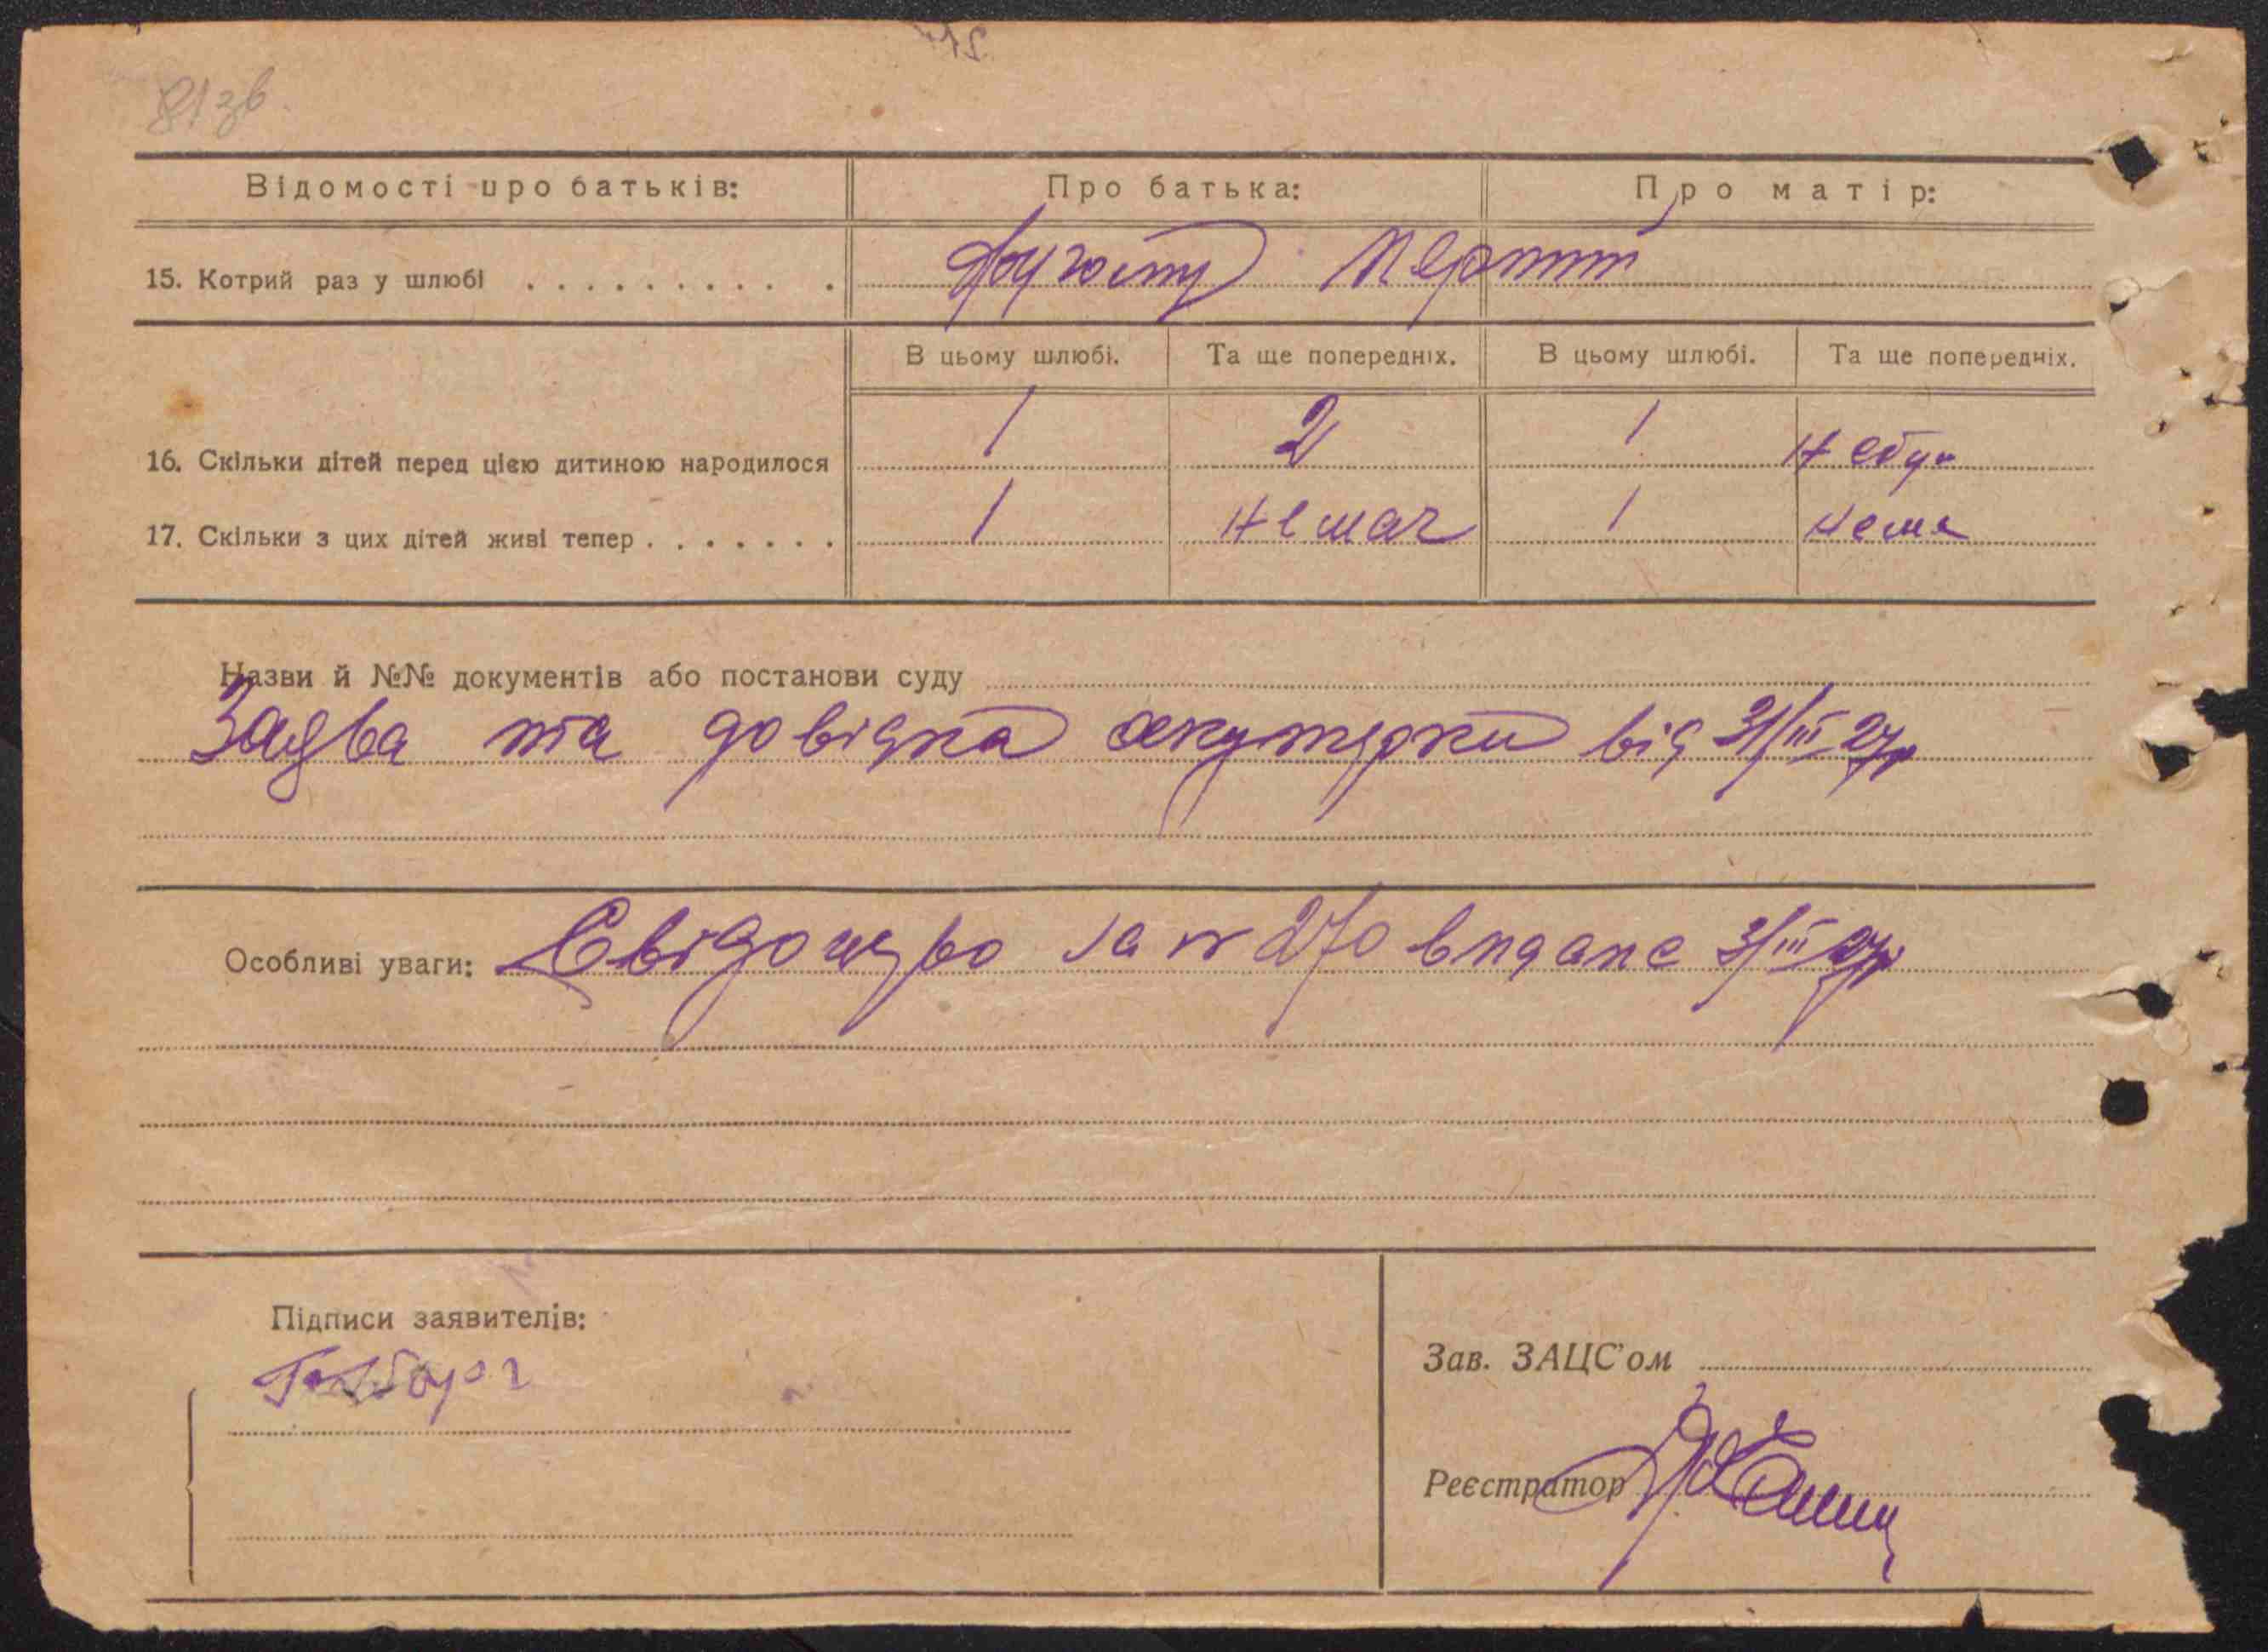 81зв.
Відомості про батьків: Про батька: Про матір:
15. Котрий раз у шлюбі . . . . . . . . . . .
В цьому шлюбі. Та ще попередніх. В цьому шлюбі. Та ще попередніх.
16. Скільки дітей перед цією дитиною народилося 1 2 1
17. Скільки з цих дітей живі тепер . . . . . . . 1 немає 1 нема
Назви й №№ документів або постанови суду
Заява та довідка акушерки від 31/III 27р
Особливі уваги: Свідоцтво за n 270 видане 31/III 27р
Підписи заявителів:
Зав. ЗАЦС'ом
Реєстратор